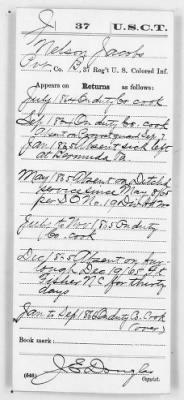 J 37 U.S.C.T.
Nelson Jacobs
Pvt., Co. B, 37 Reg't U. S. Colored Inf.
Appears on Returns as follows:
July 1864 On duty Co. cook
Sep 1864 On duty Co. cook
Absent on
Jan 1865 Absent sick left
at Bermuda Va.
May 1865 Absent on Detchd
service since Mar
per S.O. No. 19
July to Nov 1865 On duty
Co. cook
Dec 1865 Absent on fur-
lough Dec 19/65 Ft.
Fisher N.C. for thirty
days
Jan to Sep 1866 On duty B. Cook
(over)
Book mark:
J. E. Douglas
(546) Copyist.